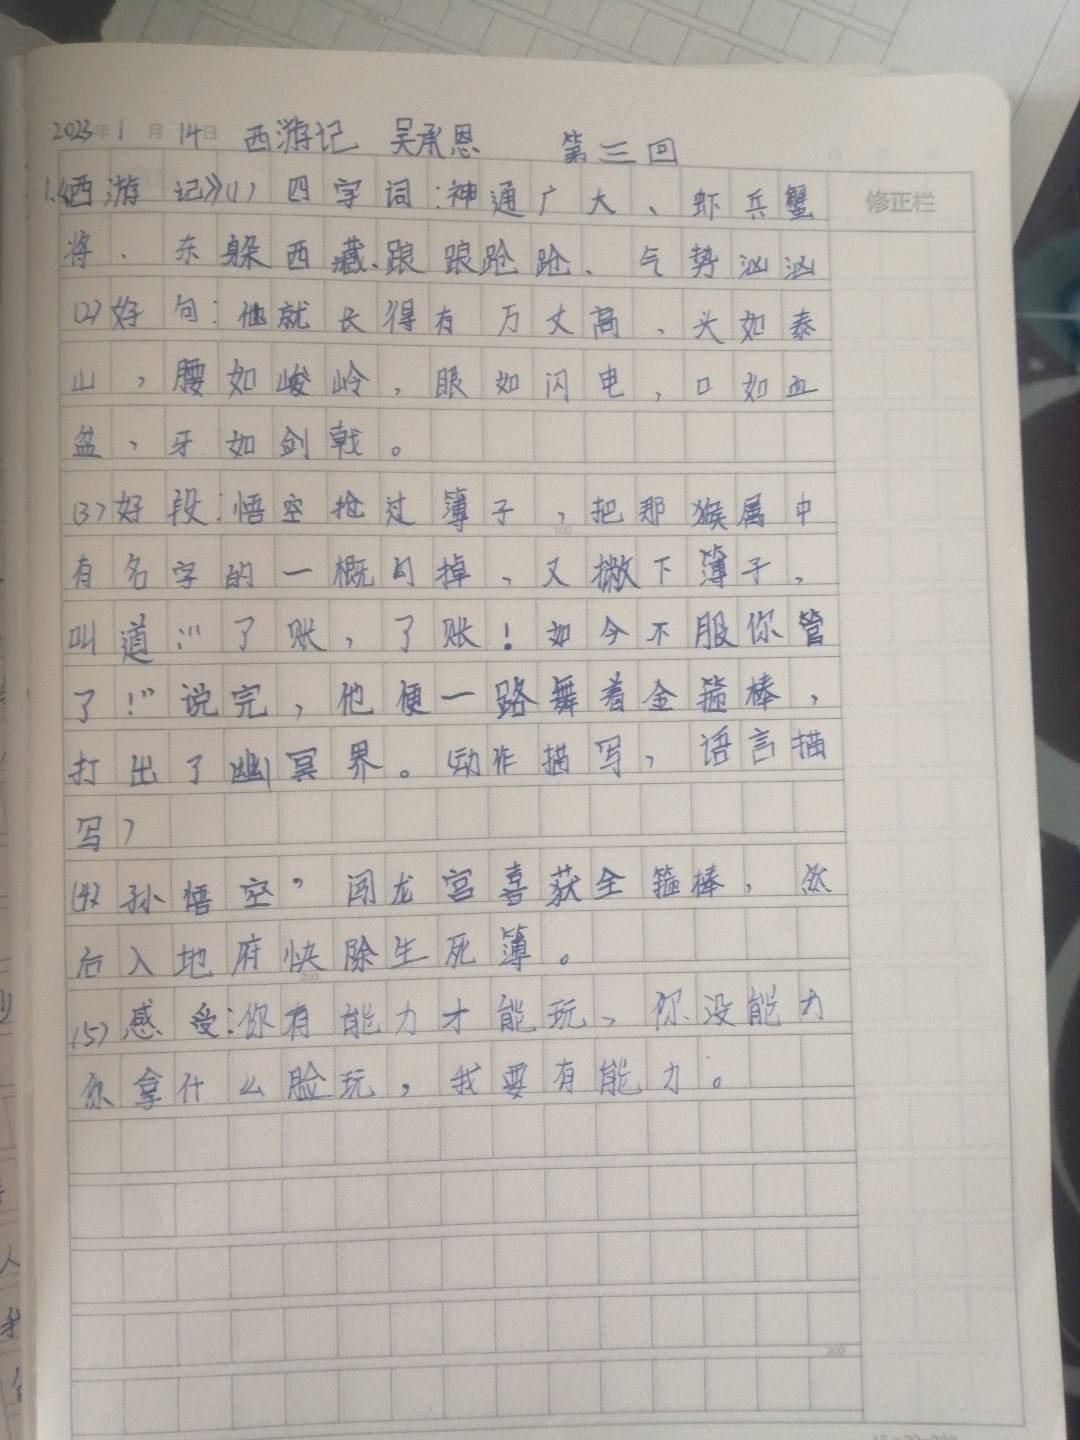 2023年1月14日 西游记 吴承恩 第三回
1.《西游记》(1) 四字词:神通广大、虾兵蟹
修正栏
将、东躲西藏、踉踉跄跄、气势汹汹
(2)好句:他就长得有万丈高、头如泰
山,腰如峻岭,眼如闪电,口如血
盆、牙如剑戟。
(3)好段:悟空抢过簿子,把那猴属中
100
有名字的一概勾掉,又撇下簿子,
叫道:“了账,了账!如今不服你管
了!”说完,他便一路舞着金箍棒,
打出了幽冥界。(动作描写,语言描
写)
(4)孙悟空,闯龙宫喜获全箍棒,然
后入地府快除生死簿。
200
(5)感受:你有能力才能玩、你没能力
你拿什么脸玩,我要有能力。
300